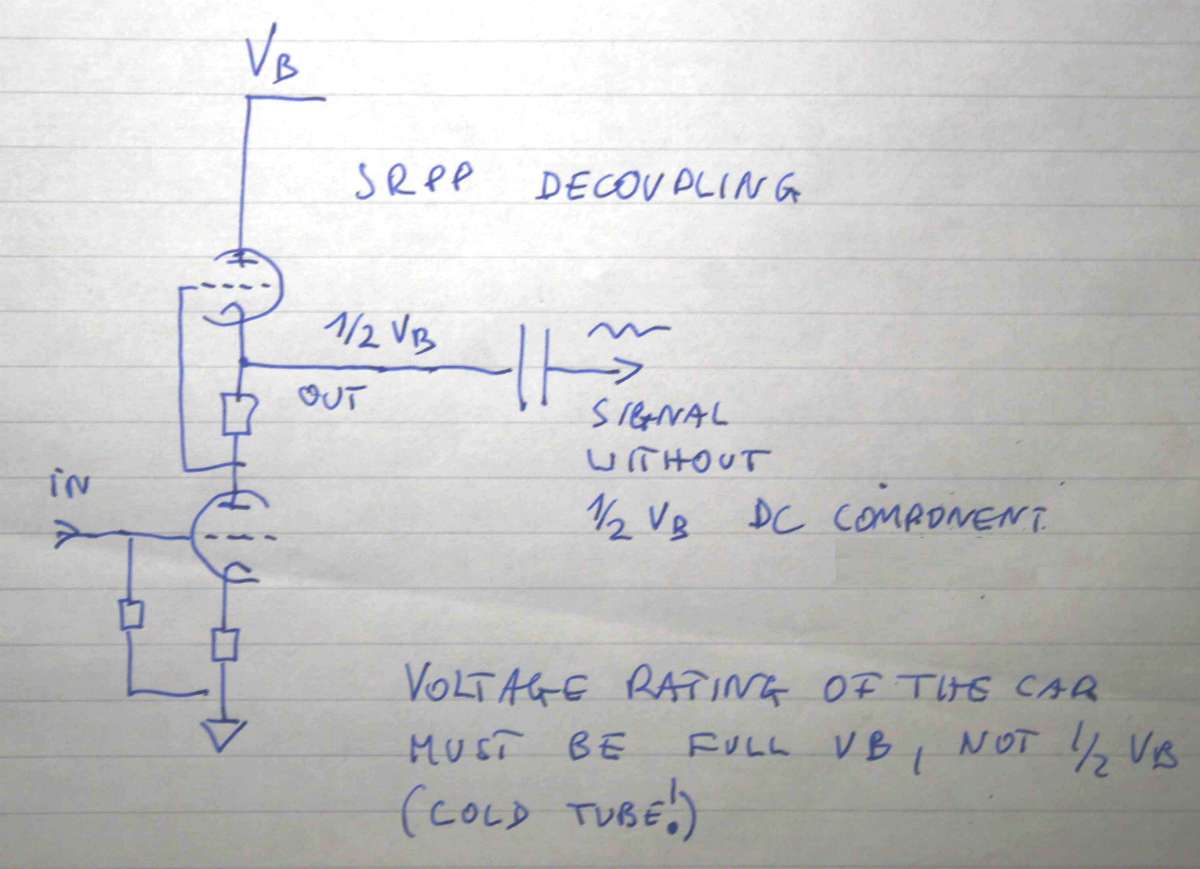 VB
SRPP DECOUPLING
1/2 VB
OUT
SIGNAL
WITHOUT
1/2 VB DC COMPONENT
IN
VOLTAGE RATING OF THE CAP
MUST BE FULL VB, NOT 1/2 VB
(COLD TUBE!)